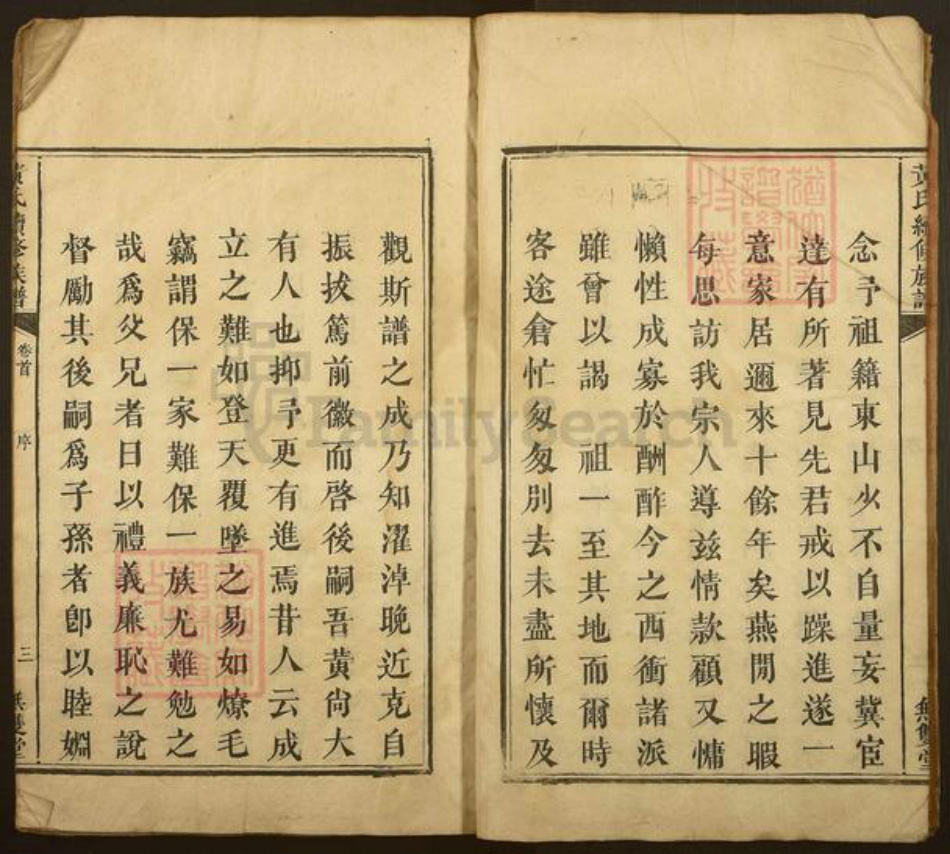 黃氏續修族譜
無雙堂
念予祖籍東山少不自量妄冀宦
達有所著見先君戒以躁進遂一
意家居邇來十餘年矣燕閒之暇
每思訪我宗人導兹情款顧又慵
懶性成寡於酬酢今之西衝諸派
雖曾以謁 祖一至其地而爾時
客途倉忙匆匆別去未盡所懷及
觀斯譜之成乃知濯淖晚近克自
振拔篤前徽而啓後嗣吾黃尙大
有人也抑予更有進焉昔人云成
立之難如登天覆墜之易如燎毛
竊謂保一家難保一族尤難勉之
哉爲父兄者日以禮義廉恥之說
督勵其後嗣爲子孫者卽以睦婣
黃氏續修族譜
卷首
序
三
無雙堂
FamilySearch